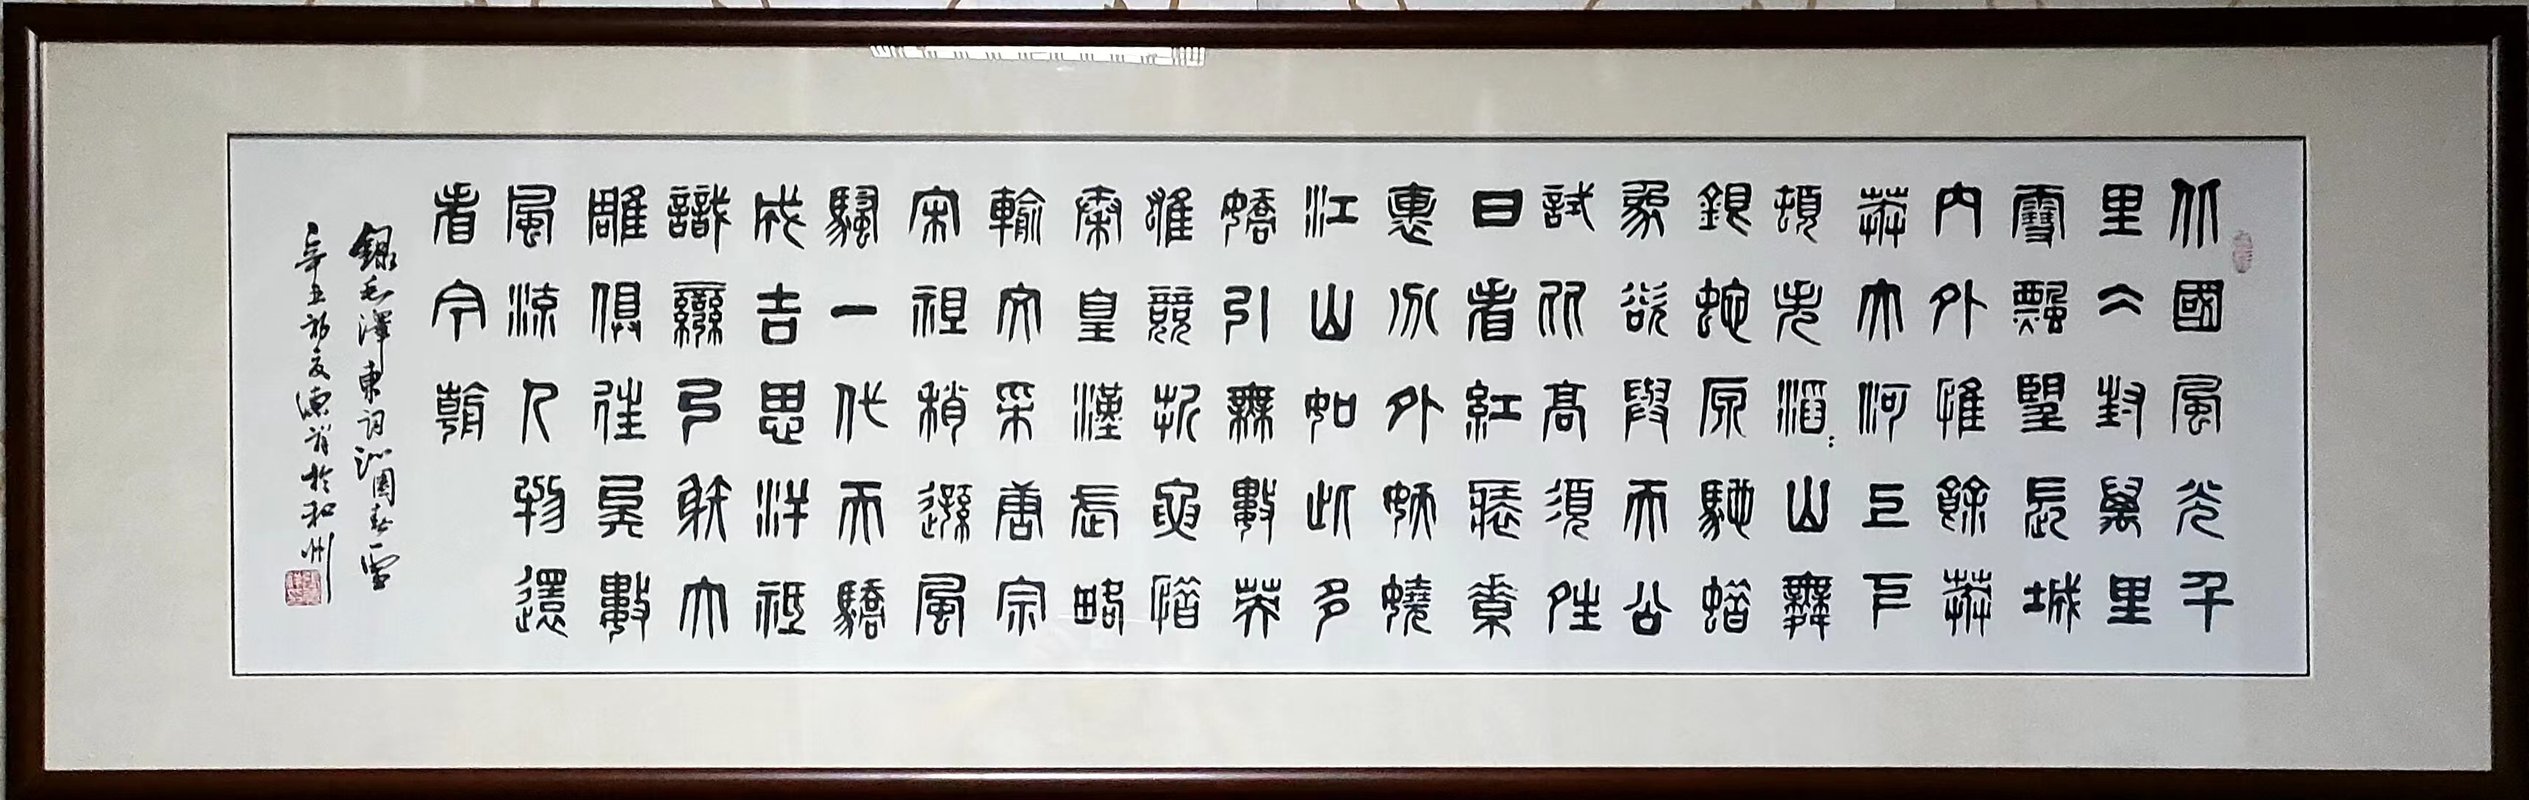 北國風光千
里冰封萬里
雪飄望長城
內外惟餘莽
莽大河上下
頓失滔:山舞
銀蛇原馳蠟
象欲與天公
試比高須晴
日看紅裝素
裹分外妖嬈
江山如此多
嬌引無數英
雄競折腰惜
秦皇漢武略
輸文采唐宗
宋祖稍遜風
騷一代天驕
成吉思汗祗
識彎弓射大
雕俱往矣數
風流人物還
看今朝
錄毛澤東詞沁園春雪
辛丑初夏於和州